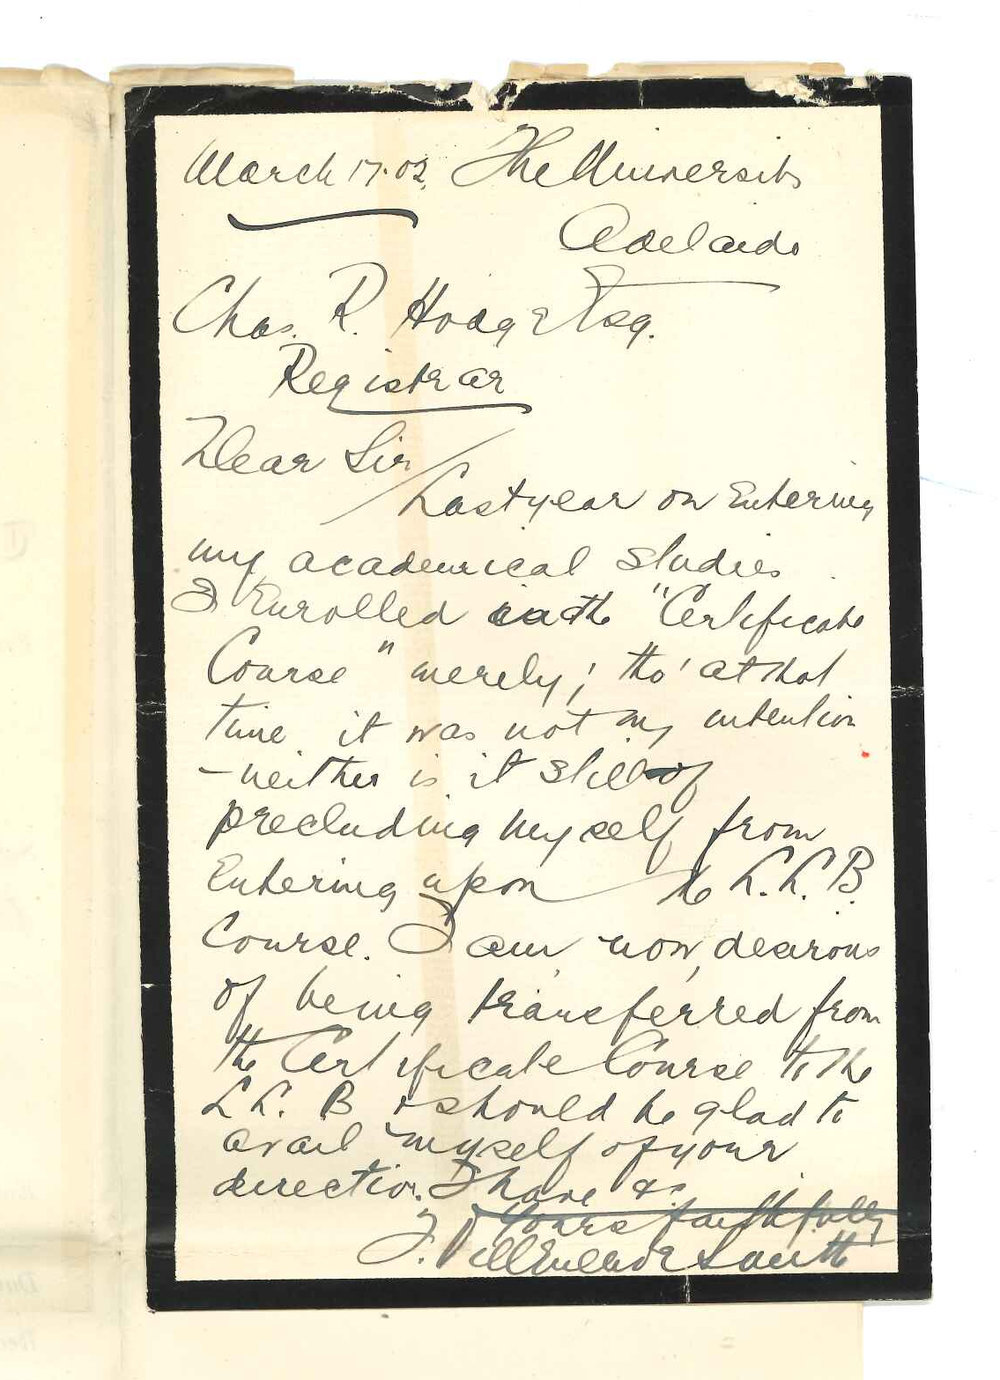 March 17.02. The University
Adelaide
Chas. R. Hodge Esq.
Registrar
Dear Sir/
Last year on Entering
my academical studies
I Enrolled in the "Certificate
Course" merely; tho' at that
time it was not my intention
– neither is it still of
precluding myself from
Entering upon the L.L.B.
Course. I am, now, desirous
of being transferred from
the Certificate Course to the
LL. B & should be glad to
avail myself of your
direction. I have &c.
Yours faithfully
F. Villeneuve Smith